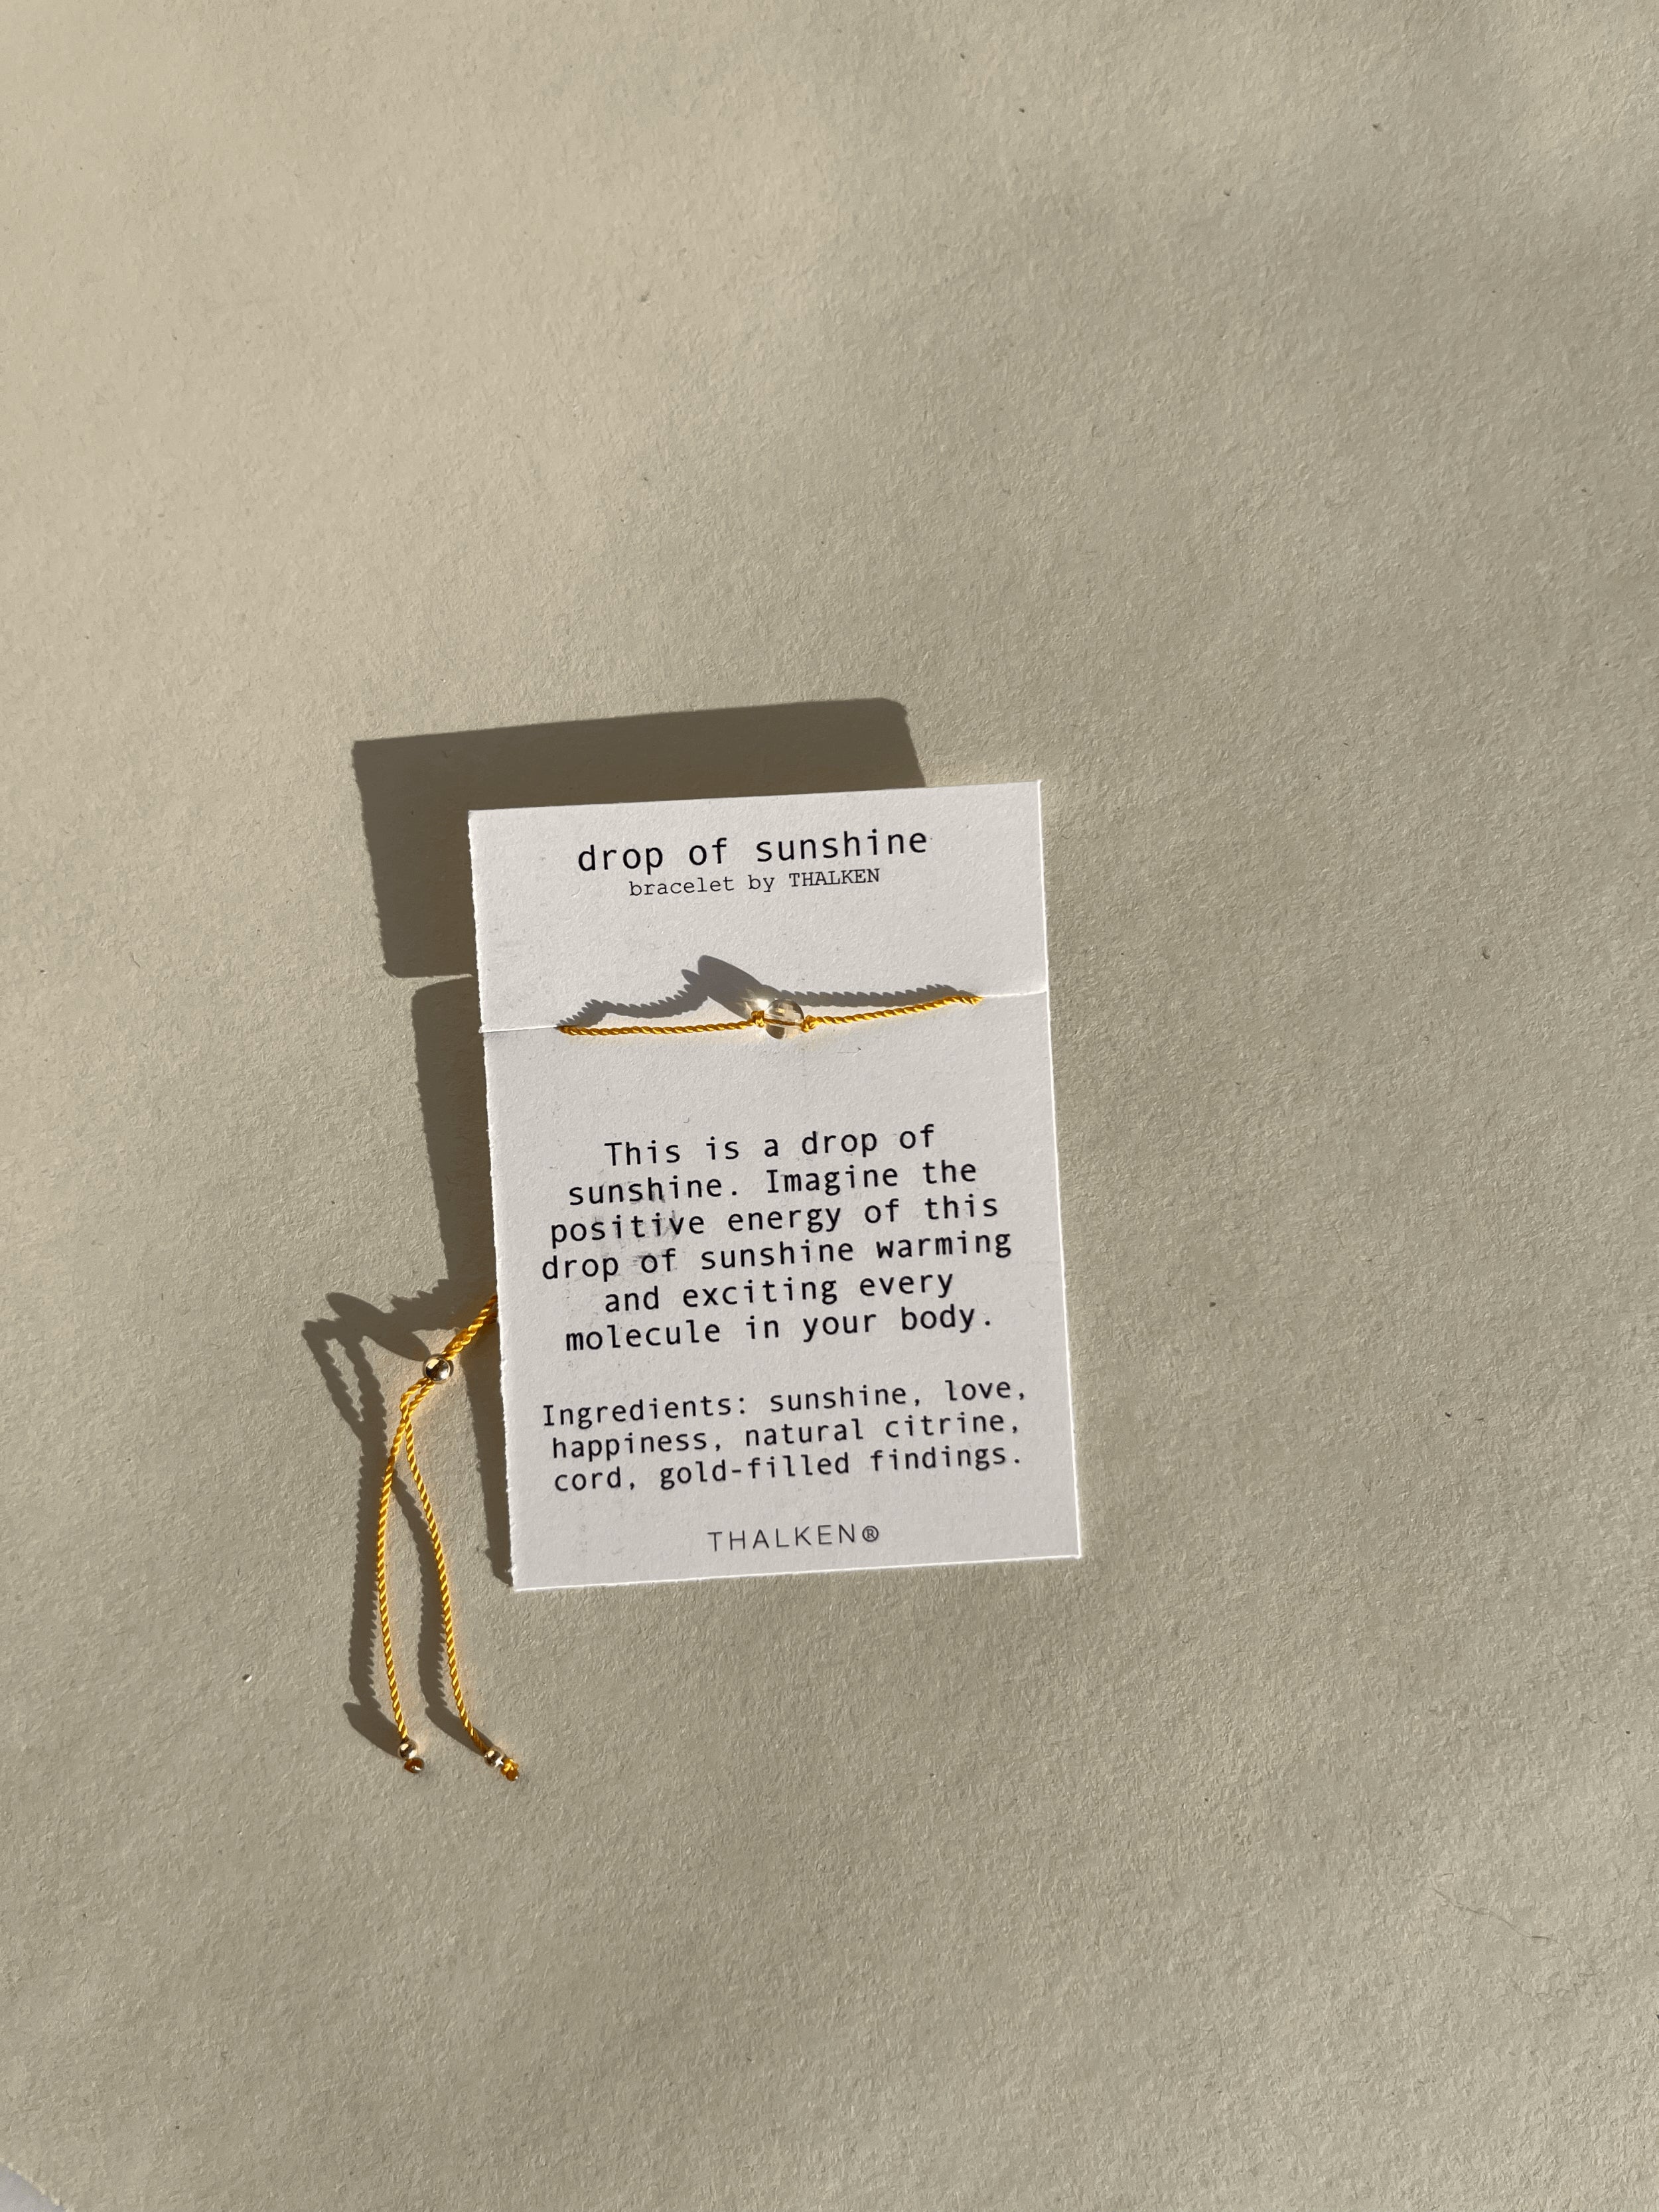 drop of sunshine
bracelet by THALKEN
This is a drop of
sunshine. Imagine the
positive energy of this
drop of sunshine warming
and exciting every
molecule in your body.
Ingredients: sunshine, love,
happiness, natural citrine,
cord, gold-filled findings.
THALKEN®